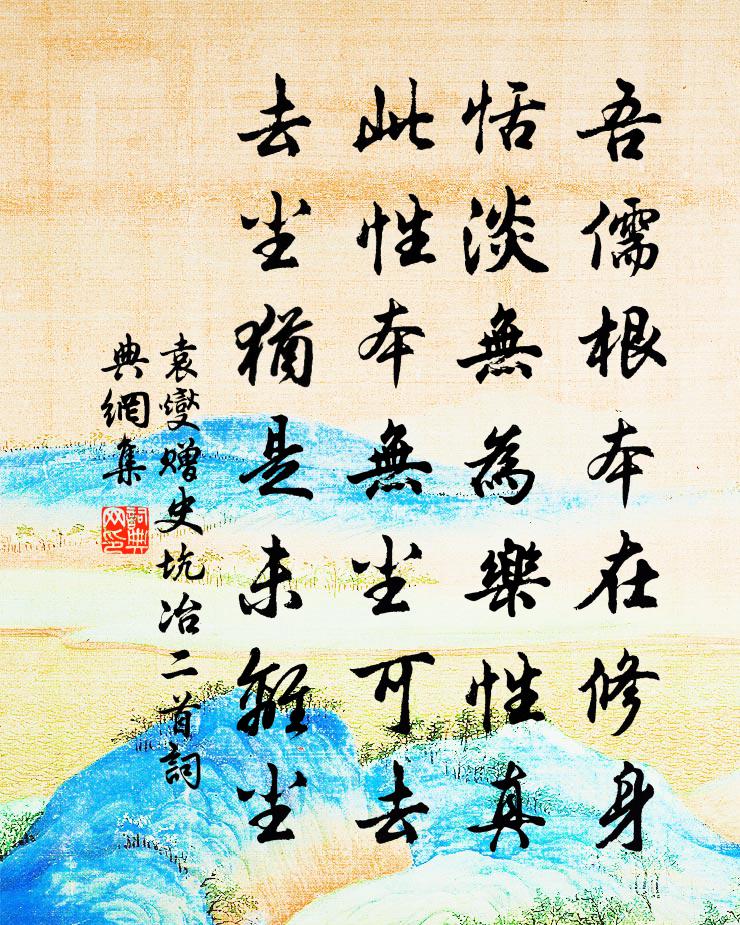 吾儒根本在修身
恬淡無為樂性真
此性本無尘可去
去尘猶是未離尘
袁燮贈史坑冶二首詞
典網集
詞典
网印